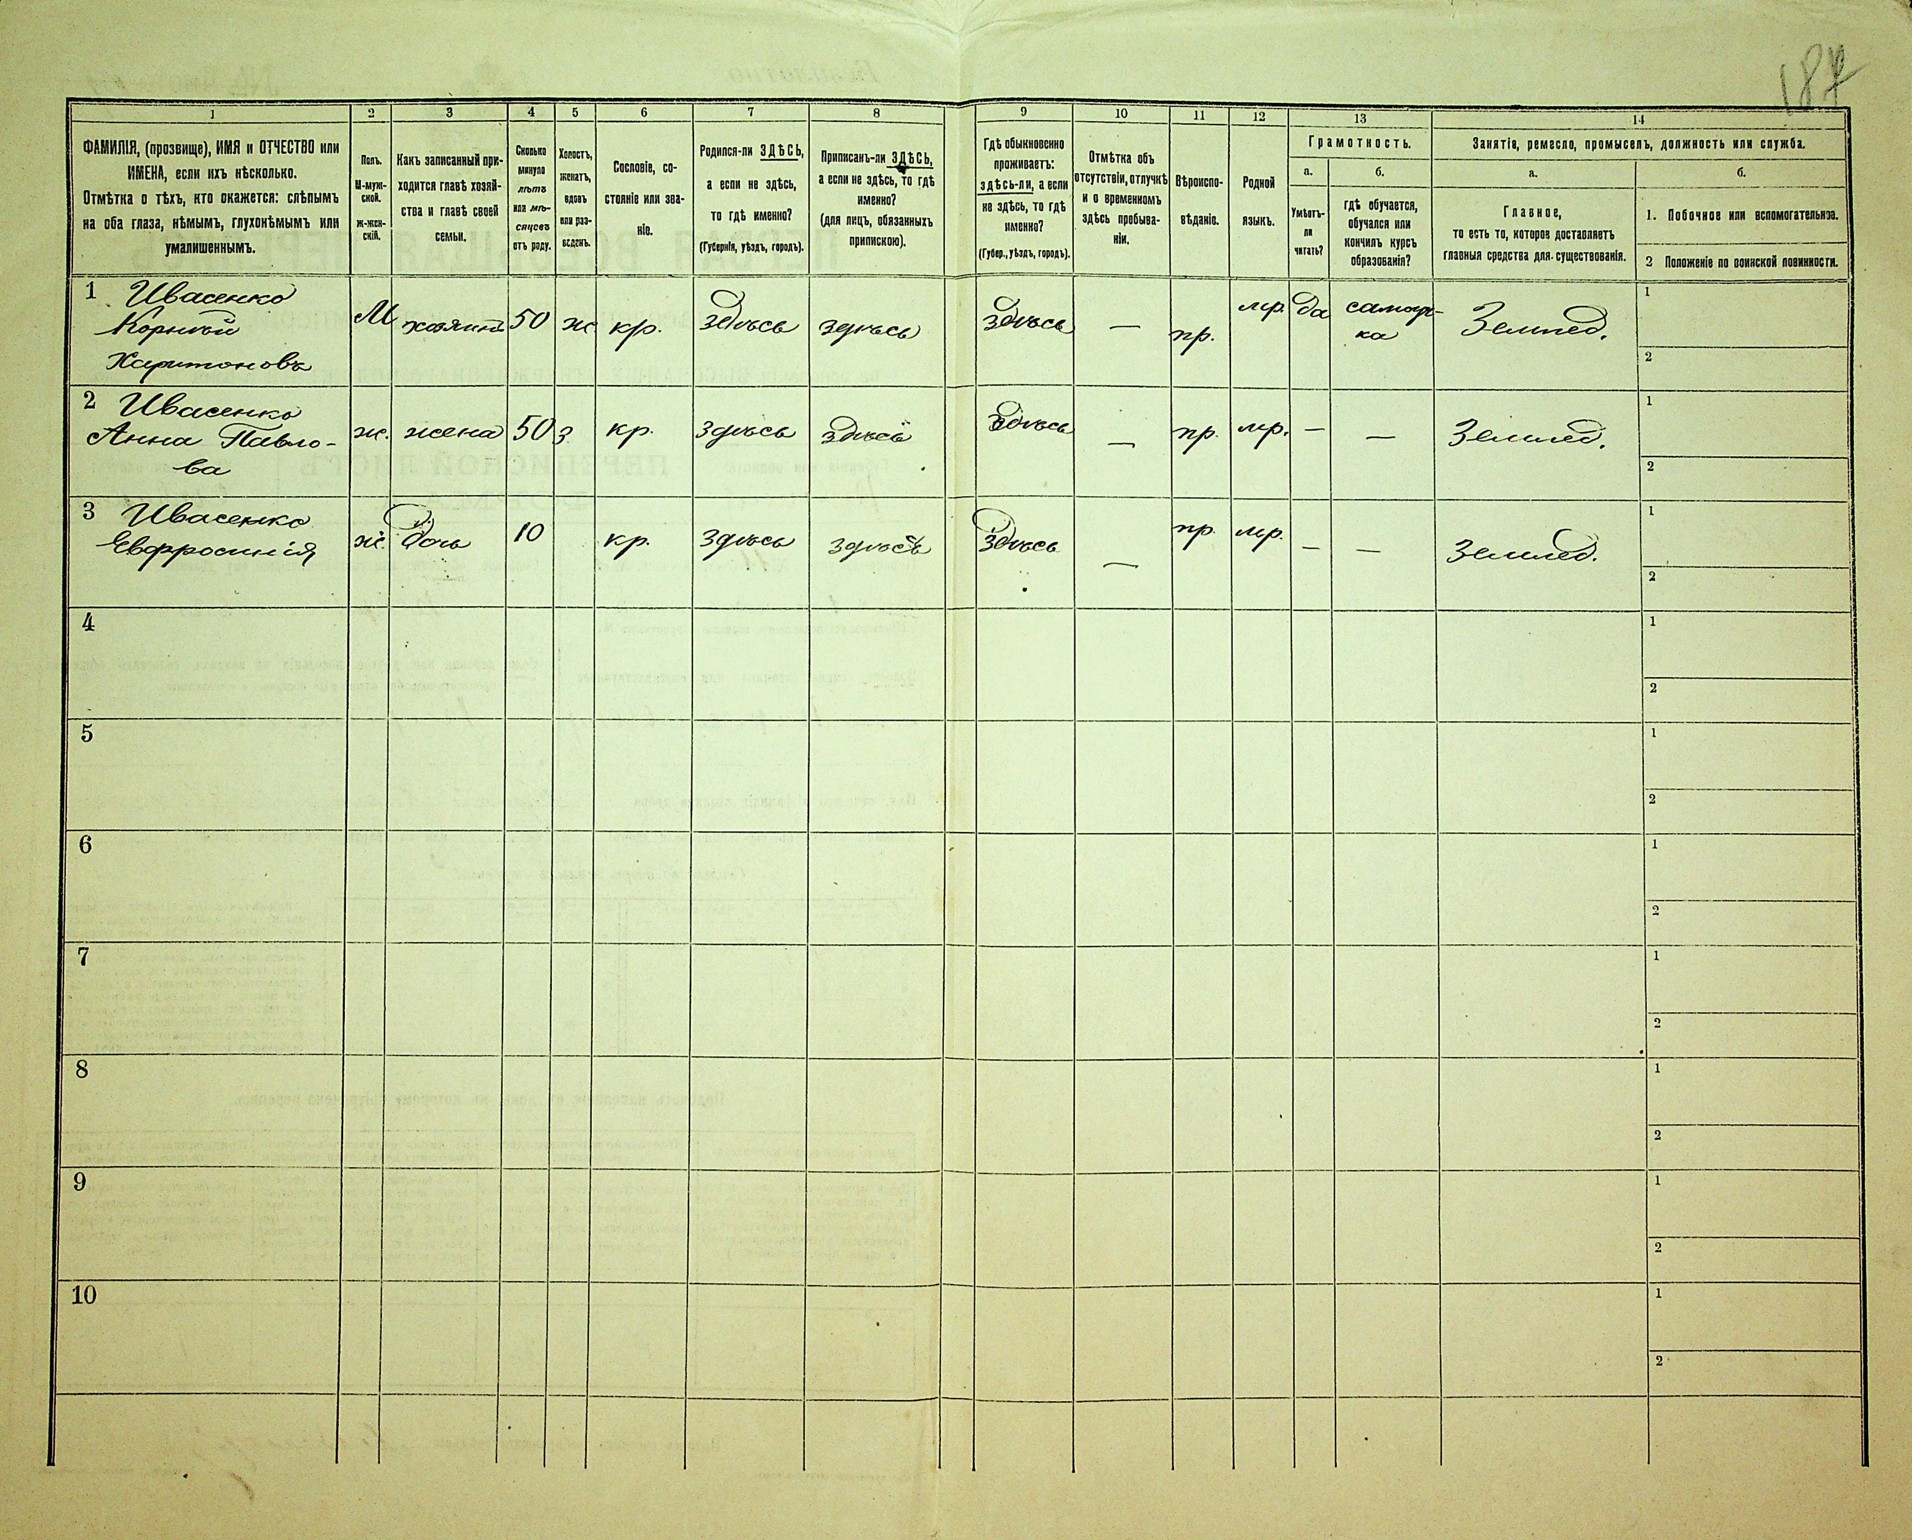 187
1 2 3 4 5 6 7 8 9 10 11 12 13 14
ФАМИЛІЯ, (прозвище), ИМЯ и ОТЧЕСТВО или
ИМЕНА, если ихъ нѣсколько.
Отмѣтка о тѣхъ, кто окажется: слѣпымъ
на оба глаза, нѣмымъ, глухонѣмымъ или
умалишеннымъ.
Полъ.
М-муж-
ской.
Ж-жен-
скій.
Какъ записанный при-
ходится главѣ хозяй-
ства и главѣ своей
семьи.
Сколько
минуло
лѣтъ
или мѣ-
сяцевъ
отъ роду.
Холостъ,
женатъ,
вдовъ
или раз-
веденъ.
Сословіе, со-
стояніе или зва-
ніе.
Родился-ли ЗДѢСЬ,
а если не здѣсь,
то гдѣ именно?
(Губернія, уѣздъ, городъ).
Приписанъ-ли ЗДѢСЬ,
а если не здѣсь, то гдѣ
именно?
(для лицъ, обязанныхъ
припискою).
Гдѣ обыкновенно
проживаетъ:
здѣсь-ли, а если
не здѣсь, то гдѣ
именно?
(Губер., уѣздъ, городъ).
Отмѣтка объ
отсутствіи, отлучкѣ
и о временномъ
здѣсь пребыва-
ніи.
Вѣроиспо-
вѣданіе.
Родной
языкъ.
Грамотность.
а.
Умѣетъ-
ли
читать?
б.
гдѣ обучается,
обучался или
кончилъ курсъ
образованія?
Занятіе, ремесло, промыселъ, должность или служба.
а.
Главное,
то есть то, которое доставляетъ
главныя средства для существованія.
б.
1. Побочное или вспомогательное.
2 Положеніе по воинской повинности.
1 Ивасенко
Корнѣй
Харитоновъ
М хозяинъ 50 ж. кр. здѣсь здѣсь здѣсь — пр. мр. да самоуч-
ка
Землед.
1
2
2 Ивасенко
Анна Павло-
ва
ж. жена 50 з. кр. здѣсь здѣсь здѣсь — пр. мр. — — Землед.
1
2
3 Ивасенко
Евфросинія
ж. дочь 10 кр. здѣсь здѣсь здѣсь — пр. мр. — — Землед.
1
2
4
1
2
5
1
2
6
1
2
7
1
2
8
1
2
9
1
2
10
1
2